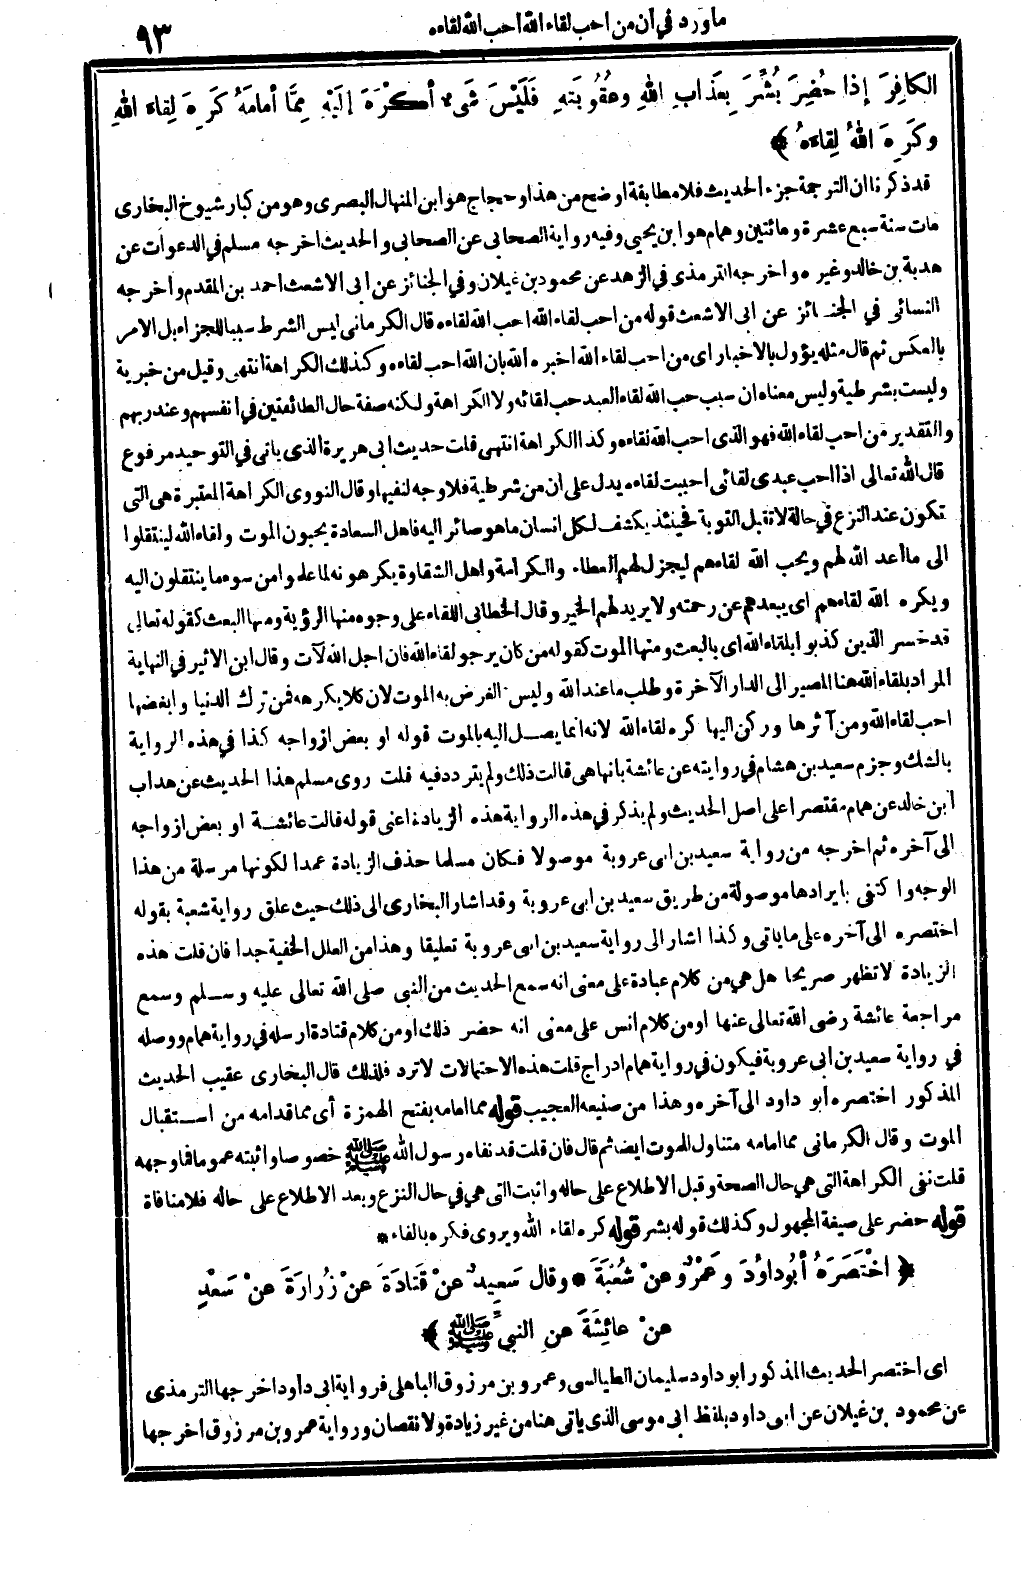 ماورد في أن من أحب لقاء الله أحب الله لقاءه
٩٣
الكافِرَ إذا حُضِرَ بُشِّرَ بِعَذابِ اللهِ وعُقُوبَتِهِ فَلَيْسَ شَىءٌ أكْرَهَ إلَيْهِ مِمَّا أمامَهُ كَرِهَ لِقاءَ اللهِ
وكَرِهَ اللهُ لِقاءَهُ ﴾
قد ذكرنا ان الترجمة جزء الحديث فلا مطابقة اوضح من هذا وحجاج هو ابن المنهال البصرى وهو من كبار شيوخ البخارى
مات سنة سبع عشرة ومائتين وهمام هو ابن يحيى وفيه رواية الصحابى عن الصحابى والحديث اخرجه مسلم في الدعوات عن
هدبة بن خالد وغيره واخرجه الترمذى في الزهد عن محمود بن غيلان وفي الجنائز عن ابى الاشعث احمد بن المقدم واخرجه
النسائى في الجنــائز عن ابى الاشعث قوله من احب لقاء الله احب الله لقاءه قال الكرمانى ليس الشرط سببا للجزاء بل الامر
بالعكس ثم قال مثله يؤول بالاخبار اى من احب لقاء الله اخبره الله بان الله احب لقاءه وكذلك الكراهة انتهى وقيل من خبرية
وليست بشرطية وليس معناه ان سبب حب الله لقاء العبد حب لقائه ولا الكراهة ولكنه صفة حال الطائفتين في انفسهم وعند ربهم
والتقدير من احب لقاء الله فهو الذى احب الله لقاءه وكذا الكراهة انتهى قلت حديث ابى هريرة الذى ياتى في التوحيد مرفوع
قال الله تعالى اذا احب عبدى لقائى احببت لقاءه يدل على ان من شرطية فلا وجه لنفيها وقال النووى الكراهة المعتبرة هى التى
تكون عند النزع في حالة لا تقبل التوبة فحينئذ يكشف لكل انسان ما هو صائر اليه فاهل السعادة يحبون الموت ولقاء الله لينتقلوا
الى ما أعد الله لهم ويحب الله لقاءهم ليجزل لهم العطاء والكرامة واهل الشقاوة يكرهونه لما علموا من سوء ما ينتقلون اليه
ويكره الله لقاءهم اى يبعدهم عن رحمته ولا يريد لهم الخير وقال الخطابى اللقاء على وجوه منها الرؤية ومنها البعث كقوله تعالى
قد خسر الذين كذبوا بلقاء الله اى بالبعث ومنها الموت كقوله من كان يرجو لقاء الله فان اجل الله لآت وقال ابن الاثير في النهاية
المراد بلقاء الله هنا المصير الى الدار الآخرة وطلب ما عند الله وليس الغرض به الموت لان كلا يكرهه فمن ترك الدنيا وابغضها
احب لقاء الله ومن آثرها وركن اليها كره لقاء الله لانه انما يصــل اليه بالموت قوله او بعض ازواجه كذا في هذه الرواية
بالشك وجزم سعيد بن هشام في روايته عن عائشة بانها هى قالت ذلك ولم يتردد فيه قلت روى مسلم هذا الحديث عن هداب
ابن خالد عن همام مقتصرا على اصل الحديث ولم يذكر في هذه الرواية هذه الزيادة اعنى قوله فالت عائشــة او بعض ازواجه
الى آخره ثم اخرجه من رواية سعيد بن ابى عروبة موصولا فكان مسلما حذف الزيادة عمدا لكونها مرسلة من هذا
الوجه واكتفى بايرادها موصولة من طريق سعيد بن ابى عروبة وقد اشار البخارى الى ذلك حيث علق رواية شعبة بقوله
اختصره الى آخره على ما ياتى وكذا اشار الى رواية سعيد بن ابى عروبة تعليقا وهذا من العلل الخفية جدا فان قلت هذه
الزيادة لا تظهر صريحا هل هي من كلام عبادة على معنى انه سمع الحديث من النبى صلى الله تعالى عليه وســلم وسمع
مراجعة عائشة رضى الله تعالى عنها او من كلام انس على معنى انه حضر ذلك او من كلام قتادة ارسله في رواية همام ووصله
في رواية سعيد بن ابى عروبة فيكون في رواية همام ادراج قلت هذه الاحتمالات لا ترد فلذلك قال البخارى عقيب الحديث
المذكور اختصره ابو داود الى آخره وهذا من صنيعه العجيب قوله مما امامه بفتح الهمزة أى مما قدامه من اســتقبال
الموت وقال الكرمانى مما امامه متناول للموت ايضا ثم قال فان قلت قد نفاه رسول الله ﷺ خصوصا واثبته عموما فما وجهه
قلت نفى الكراهة التى هي حال الصحة وقبل الاطلاع على حاله واثبت التى هي في حال النزع وبعد الاطلاع على حاله فلا منافاة
قوله حضر على صيغة المجهول وكذلك قوله بشر قوله كره لقاء الله ويروى فكره بالفاء *
﴿ اخْتَصَرَهُ أبُو داوُدَ وعَمْرٌو عنْ شُعْبَةَ * وقال سَعِيدٌ عنْ قَتَادَةَ عنْ زُرارَةَ عنْ سَعْدٍ
عنْ عائِشَةَ عنِ النبيِّ ﷺ ﴾
اى اختصر الحديث المذكور ابو داود سليمان الطيالسى وعمرو بن مرزوق الباهلى فرواية ابى داود اخرجها الترمذى
عن محمود بن غيلان عن ابى داود بلفظ ابى موسى الذى ياتى هنا من غير زيادة ولا نقصان ورواية عمرو بن مرزوق اخرجها